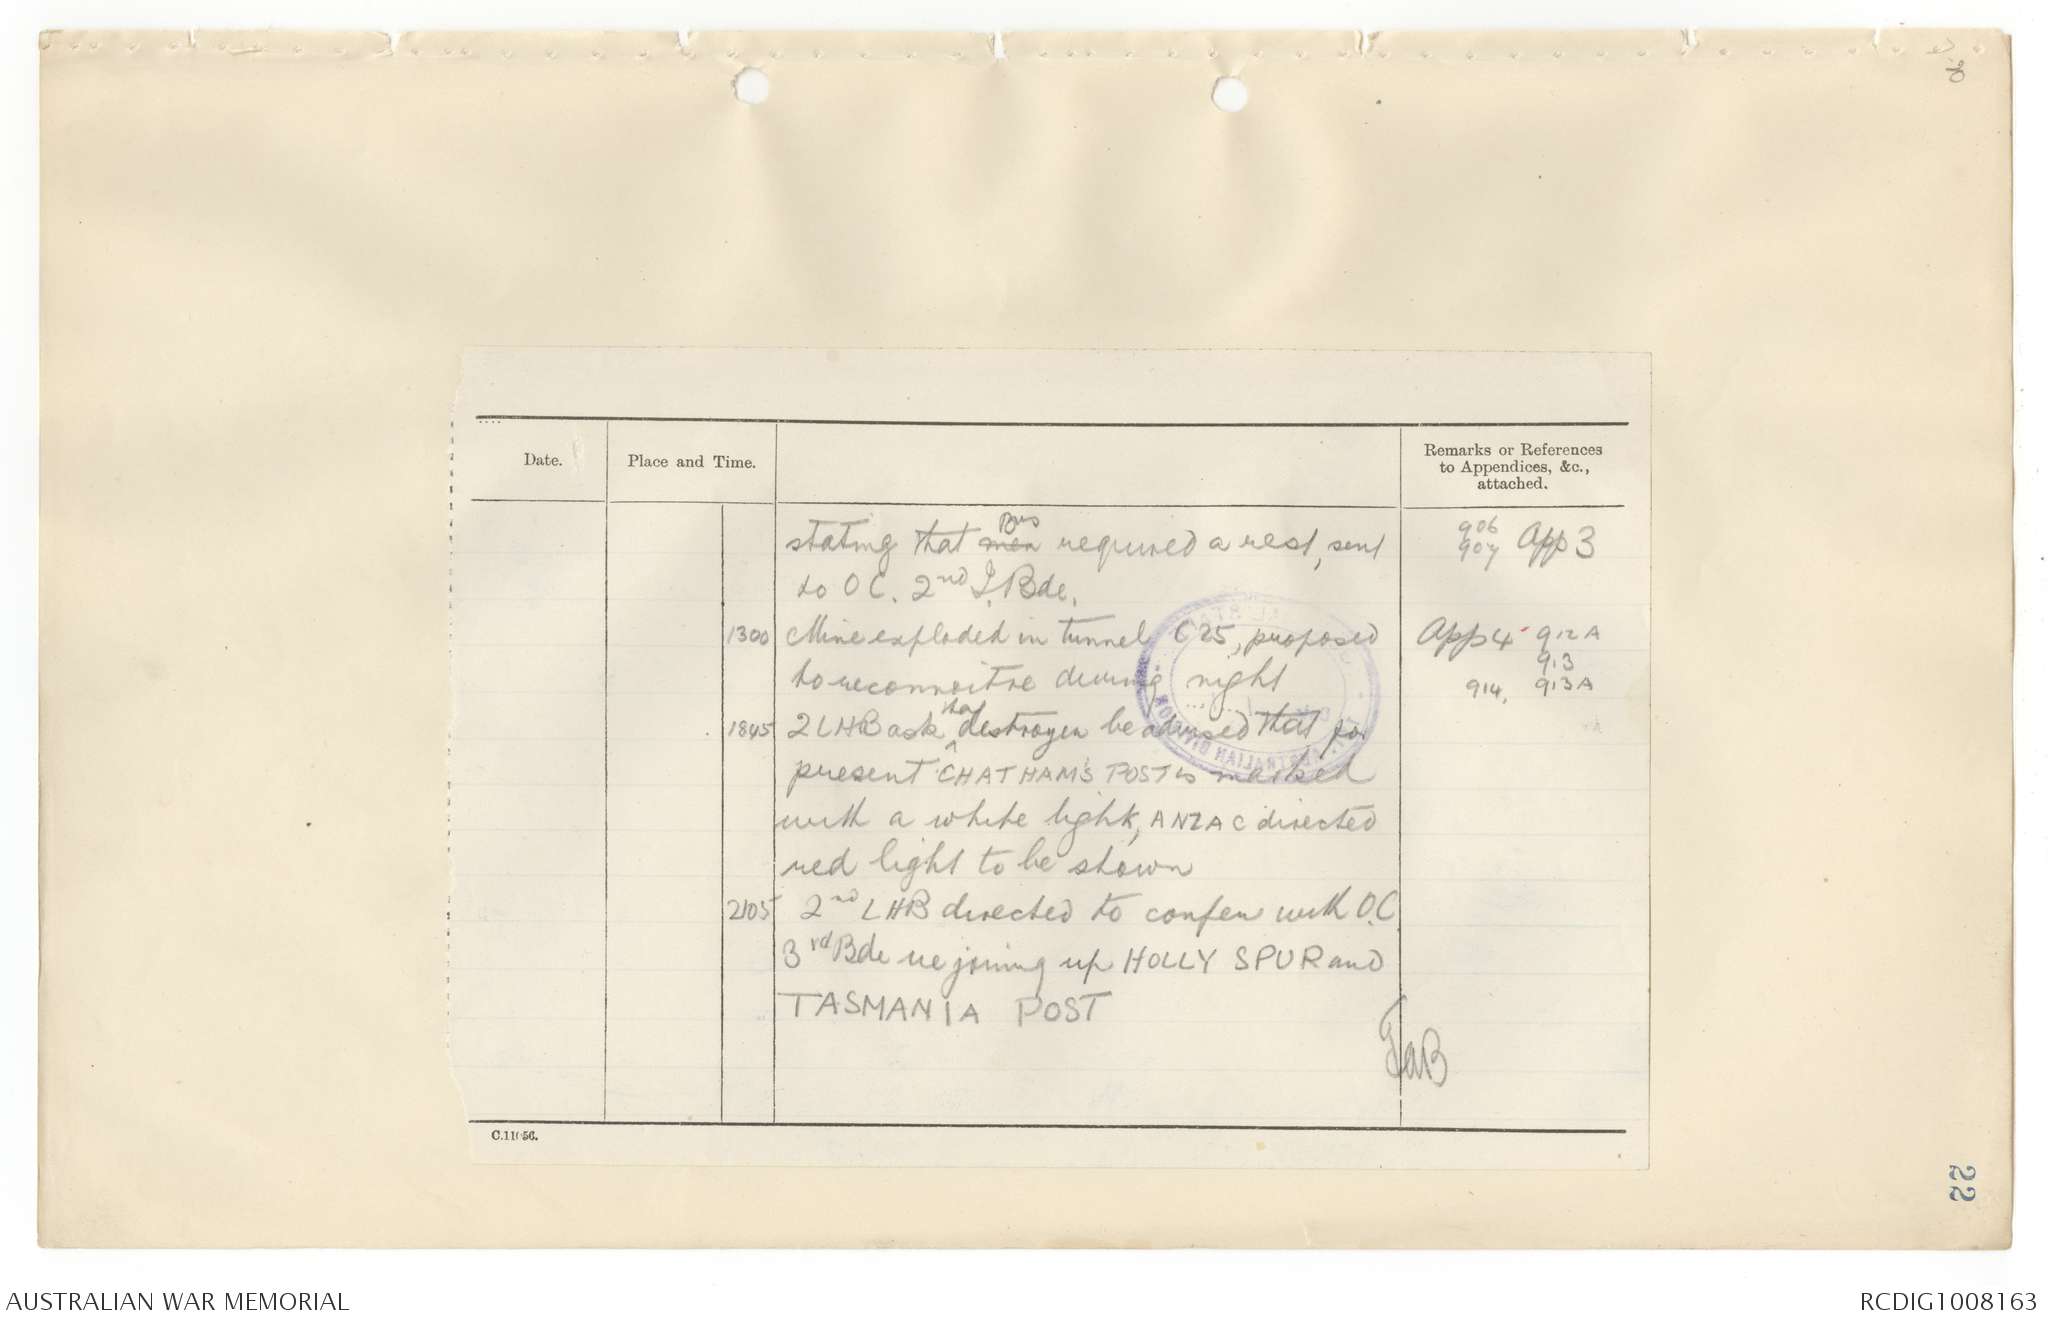 8
Date.
Place and Time.
Remarks or References
to Appendices, &c.,
attached.
Bns
stating that men required a rest, sent
906
907 App 3
to OC. 2nd I. Bde.
1300 Mine exploded in tunnel C25, proposed
App 4 912A
913
to reconnoitre during night
914, 913A
1845 2 LHB ask tha destroyer be advised that for
present CHATHAM'S POST is marked
with a white light, ANZAC directed
red light to be shown
2105 2nd LHB directed to confer with O.C
3rd Bde re joining up HOLLY SPUR and
TASMANIA POST
AUSTRALIAN DIVISION
C.11056.
22
AUSTRALIAN WAR MEMORIAL
RCDIG1008163